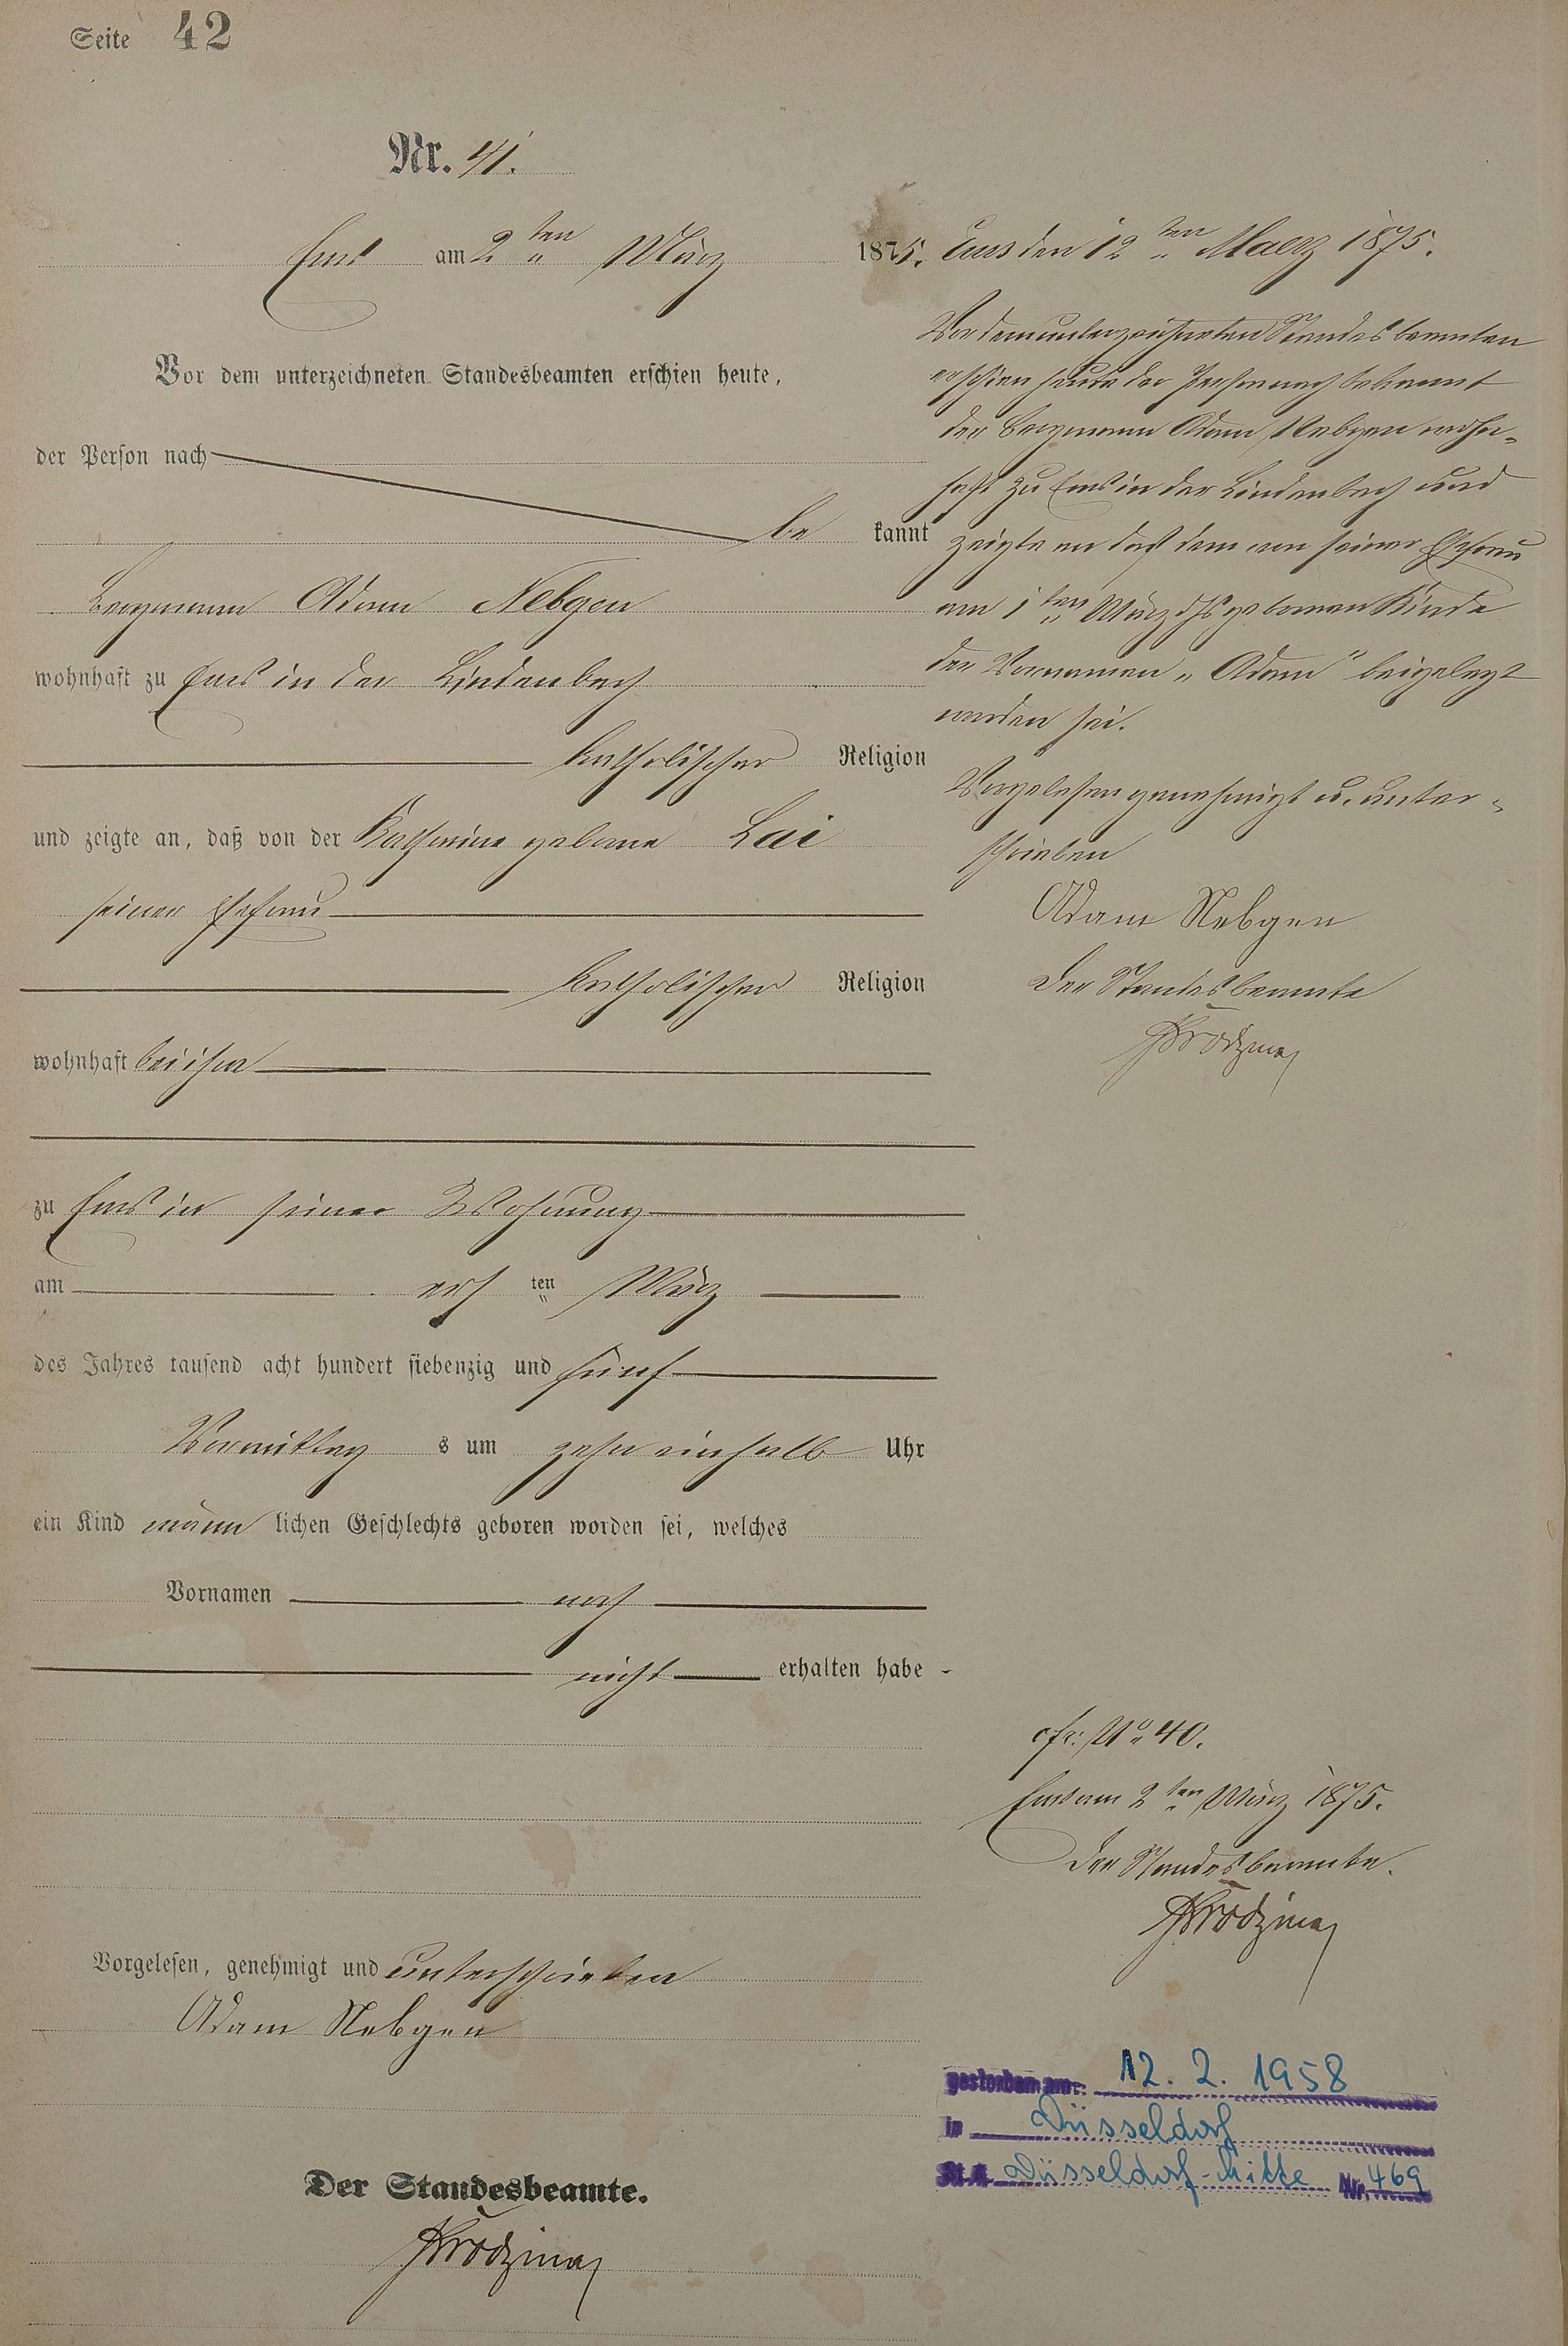 Seite 42
Nr. 41.
Ems am 2ten März 1875.
Vor dem unterzeichneten Standesbeamten erschien heute,
der Person nach
be kannt
Bergmann Adam Nebgen
wohnhaft zu Ems in der Lindenbach
katholischer Religion
und zeigte an, daß von der Katharina geborne Lai
seiner Ehefrau
katholischer Religion
wohnhaft bei ihm
zu Ems in seiner Wohnung
am ersten März
des Jahres tausend acht hundert siebenzig und fünf
Vormittag s um zehn einhalb Uhr
ein Kind männ lichen Geschlechts geboren worden sei, welches
Vornamen noch
nicht erhalten habe
Vorgelesen, genehmigt und unterschrieben
Adam Nebgen
Der Standesbeamte.
Ems den 12ten Maerz 1875.
Vor dem unterzeichneten Standesbeamten
erschien heute der Person nach bekannt
der Bergmann Adam Nebgen wohn-
haft zu Ems in der Lindenbach und
zeigte an daß dem von seiner Ehefrau
am 1ten März dJs gebornen Kinde
der Vornamen „Adam" beigelegt
worden sei.
Vorgelesen genehmigt u. unter-
schrieben
Adam Nebgen
Der Standesbeamte
cfr: No 40.
Ems am 2ten März 1875.
Der Standesbeamte.
gestorben am: 12. 2. 1958
in Düsseldorf
St.A. Düsseldorf-Mitte Nr. 469